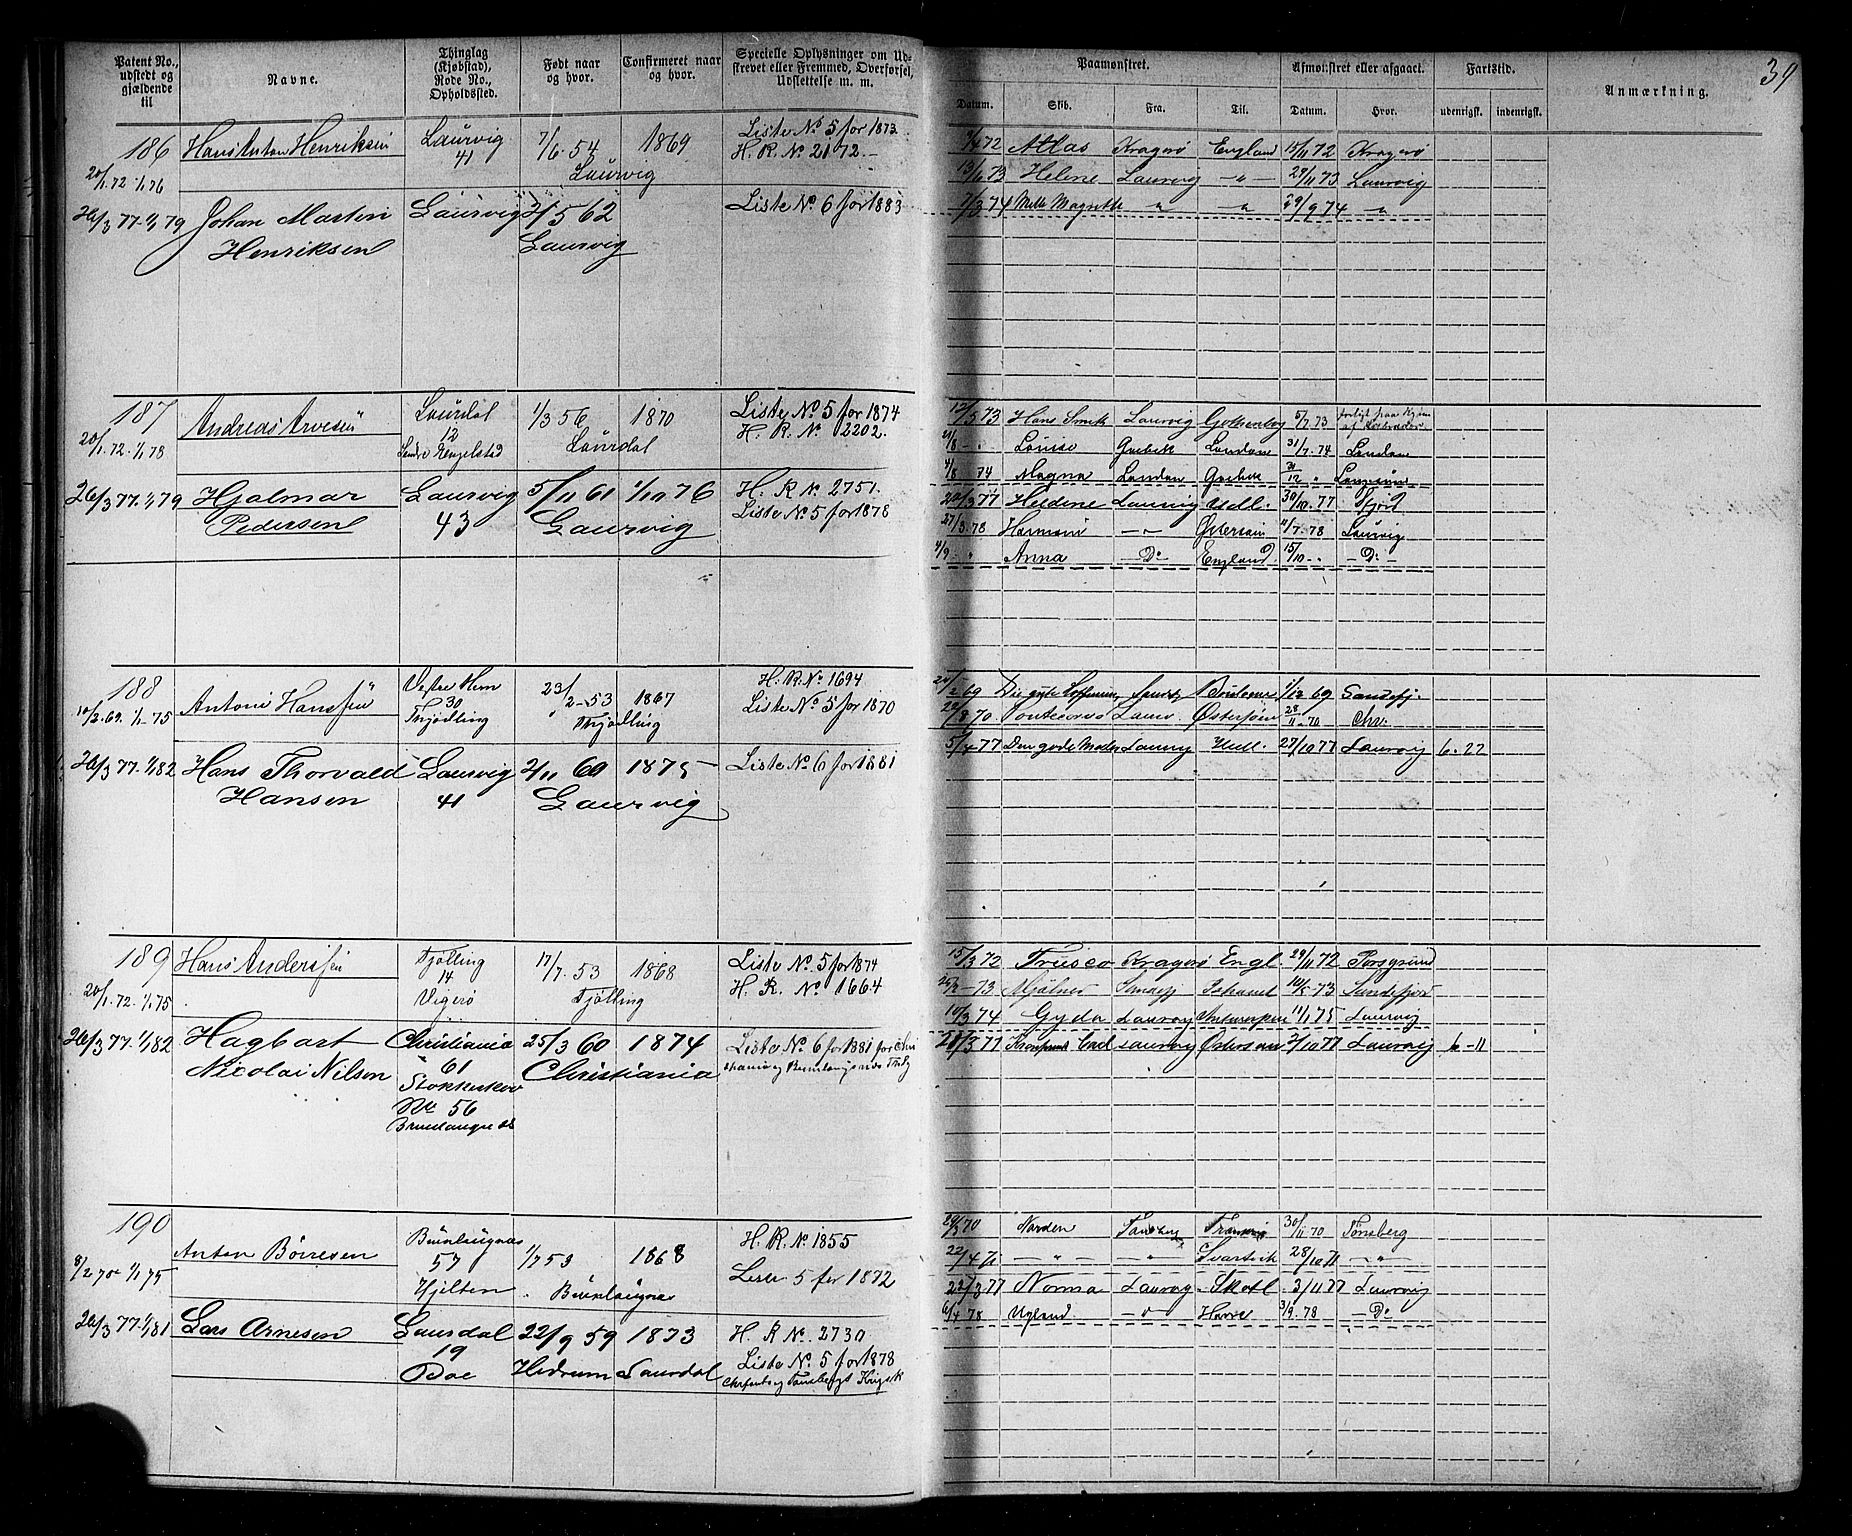 Patent No., udstedt og gjældende til
Navne.
Thinglag (Kjøbstad), Rode No., Opholdssted.
Født naar og hvor.
Confirmeret naar og hvor.
Specielle Oplysninger om Udskrevet eller Fremmed, Overførsel, Udslettelse m. m.
Paamønstret.
Afmønstret eller afgaaet.
Fartstid.
Anmærkning.
39
Datum. Skib. Fra. Til. Datum. Hvor. udenrigsk. indenrigsk.
186 Hans Anton Henriksen Laurvig 7/6 54 1869 Liste No 5 for 1873
41 Laurvig H. R. No 2172.
20/1 72 1/1 76
26/3 77 1/1 79 Johan Martin Laurvig 2/5 62 Liste No 6 for 1883
Henriksen Laurvig
72 Atlas Kragerø England 15/11 72 Kragerø
13/6 73 Helene Laurvig - " - 29/11 73 Laurvig
7/3 74 Mette Magrethe " " 29/9 74 "
187 Andreas Arvesen Laurdal 1/3 56 1870 Liste No 5 for 1874
12 Laurdal H. R. No 2202.
20/1 72 1/1 78
26/3 77 1/1 79 Hjalmar Laurvig 5/11 61 1/10 76 H. R No 2751.
Pedersen 43 Laurvig Liste No 5 for 1878
12/5 73 Hans Smith Laurvig 5/7 73
Louise London 31/7 74 London
4/8 74 Magna London
20/3 77 Laurvig 30/10 77 Fjord
27/3 78 - " - 4/7 78 Laurvig
4/9 " Anna - Do England 15/10 - Do -
188 Anton Hanssen Vestre Hem 23/2-53 1867 H. R. No 1694
30 Liste No 5 for 1870
10/2 69 1/1 75 Thjødling Thjødling
26/3 77 1/1 82 Hans Thorvald Laurvig 2/11 60 1875 Liste No 6 for 1881
Hansen 41 Laurvig
69 Die gute Hoffnung 1/12 69 Sandefj.
70 Østersøen 28/11 70
5/4 77 Den gode Moder Laurvig Hull. 27/10 77 Laurvig 6-22
189 Hans Anderssen Tjølling 17/7 53 1868 Liste No 5 for 1874
14 H. R. No 1664
20/1 72 1/1 75 Vigerø Tjølling
26/3 77 1/1 82 Hagbart Christiania 25/3 60 1874 Liste No 6 for 1881
Nicolai Nilsen 61 Christiania
No 56
15/3 72 Kragerø Engl. 29/11 72 Porsgrund
73 Sandefj 73 Sandefjord
10/3 74 Gyda Laurvig Antwerpen 11/1 75 Laurvig
77 Laurvig 2/10 77 Laurvig 6-11
190 Anton Børresen Brunlaugnæs 1/7 53 1868 H. R. No 1855
57 Liste 5 for 1872
8/2 70 1/1 75 Hjelten Brunlaugnæs
26/3 77 1/1 81 Lars Arnesen Laurdal 22/9 59 1873 H. R No. 2730
19 Liste No 5 for 1878
Boe Hedrum Laurdal
70 Norden 30/11 70 Tønsberg
22/4 71 - " - " Svartvik 28/10 71 - " -
22/3 77 Norma Laurvig Skotl. 3/11 77 Laurvig
6/4 78 Ugland. - " Havre 3/9 78 - Do